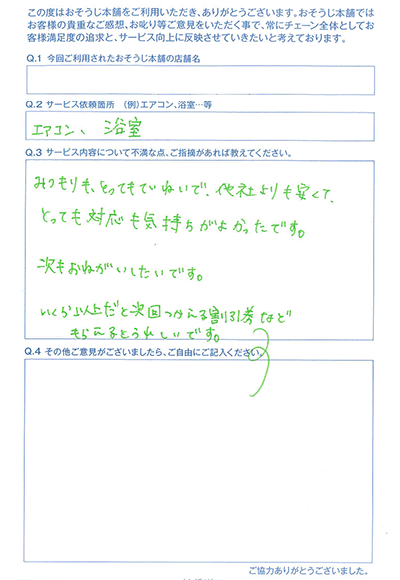 この度はおそうじ本舗をご利用いただき、ありがとうございます。おそうじ本舗では
お客様の貴重なご感想、お叱り等ご意見をいただく事で、常にチェーン全体としてお
客様満足度の追求と、サービス向上に反映させていきたいと考えております。
Q.1 今回ご利用されたおそうじ本舗の店舗名
Q.2 サービス依頼箇所 (例)エアコン、浴室…等
エアコン、浴室
Q.3 サービス内容について不満な点、ご指摘があれば教えてください。
みつもりも、とってもていねいで、他社よりも安くて、
とっても対応も気持ちがよかったです。
次もおねがいしたいです。
いくら以上だと次回つかえる割引券など
もらえるとうれしいです。
Q.4 その他ご意見がございましたら、ご自由にご記入ください。
ご協力ありがとうございました。